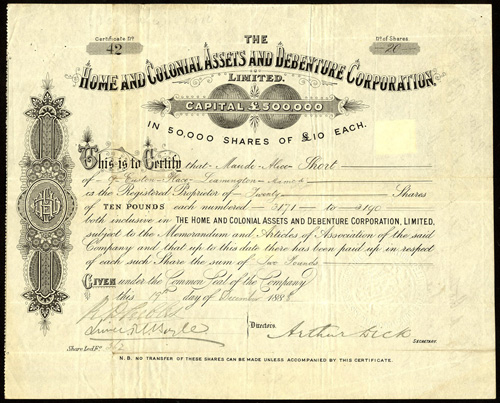 THE
Certificate No.
42
No. of Shares
20
HOME AND COLONIAL ASSETS AND DEBENTURE CORPORATION,
LIMITED.
CAPITAL £500,000
IN 50,000 SHARES OF £10 EACH.
This is to Certify that Maude Alice Short
of Euston Place Leamington
is the Registered Proprietor of Twenty Shares
OF TEN POUNDS each numbered 3171 to 3190
both inclusive in THE HOME AND COLONIAL ASSETS AND DEBENTURE CORPORATION, LIMITED,
subject to the Memorandum and Articles of Association of the said
Company and that up to this date there has been paid up in respect
of each such Share the sum of Two Pounds
GIVEN under the Common Seal of the Company
this 19th day of December 1888
Directors.
Arthur Dick
SECRETARY.
Share Led. Fo.
N.B. NO TRANSFER OF THESE SHARES CAN BE MADE UNLESS ACCOMPANIED BY THIS CERTIFICATE.